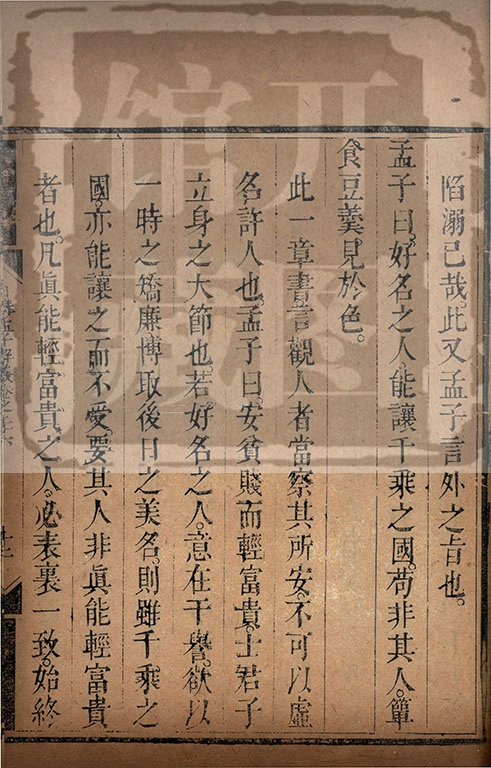 陷溺已哉。此又孟子言外之旨也。
孟子曰。好名之人能讓千乘之國。苟非其人。簞
食豆羹。見於色。
此一章書言觀人者當察其所安。不可以虛
名許人也。孟子曰。安貧賤而輕富貴。士君子
立身之大節也。若好名之人。意在干譽。欲以
一時之矯廉博取後日之美名。則雖千乘之
國。亦能讓之而不受。要其人非眞能輕富貴
者也。凡眞能輕富貴之人。必表裏一致。始終